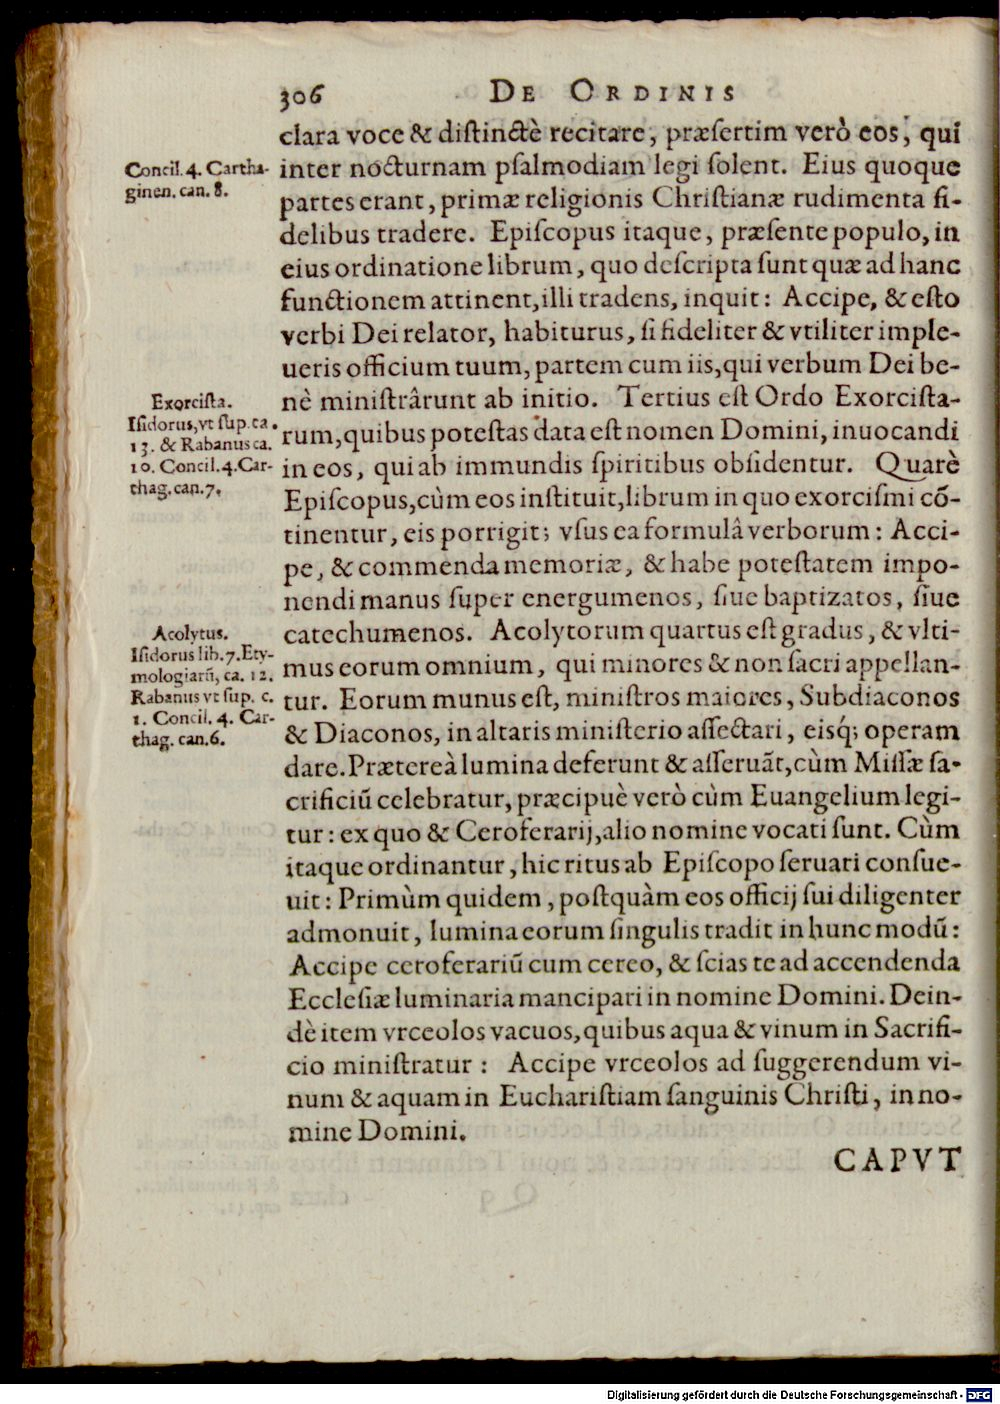 306 DE ORDINIS
clara voce & diſtinctè recitare, præſertim verò eos, qui
inter nocturnam pſalmodiam legi ſolent. Eius quoque
partes erant, primæ religionis Chriſtianæ rudimenta fi-
delibus tradere. Epiſcopus itaque, præſente populo, in
eius ordinatione librum, quo deſcripta ſunt quæ ad hanc
functionem attinent, illi tradens, inquit: Accipe, & eſto
verbi Dei relator, habiturus, ſi fideliter & vtiliter imple-
ueris officium tuum, partem cum iis, qui verbum Dei be-
nè miniſtrârunt ab initio. Tertius eſt Ordo Exorciſta-
rum, quibus poteſtas data eſt nomen Domini, inuocandi
in eos, qui ab immundis ſpiritibus obſidentur. Quarè
Epiſcopus, cùm eos inſtituit, librum in quo exorciſmi cō-
tinentur, eis porrigit; vſus ea formulâ verborum: Acci-
pe, & commenda memoriæ, & habe poteſtatem impo-
nendi manus ſuper energumenos, ſiue baptizatos, ſiue
catechumenos. Acolytorum quartus eſt gradus, & vlti-
mus eorum omnium, qui minores & non ſacri appellan-
tur. Eorum munus eſt, miniſtros maiores, Subdiaconos
& Diaconos, in altaris miniſterio aſſectari, eisq́; operam
dare. Prætereà lumina deferunt & aſſeruāt, cùm Miſſæ ſa-
crificiū celebratur, præcipuè verò cùm Euangelium legi-
tur: ex quo & Ceroferarij, alio nomine vocati ſunt. Cùm
itaque ordinantur, hic ritus ab Epiſcopo ſeruari conſue-
uit: Primùm quidem, poſtquàm eos officij ſui diligenter
admonuit, lumina eorum ſingulis tradit in hunc modū:
Accipe ceroferariū cum cereo, & ſcias te ad accendenda
Eccleſiæ luminaria mancipari in nomine Domini. Dein-
dè item vrceolos vacuos, quibus aqua & vinum in Sacrifi-
cio miniſtratur: Accipe vrceolos ad ſuggerendum vi-
num & aquam in Euchariſtiam ſanguinis Chriſti, in no-
mine Domini.
CAPVT
Concil. 4. Cartha-
ginen. can. 8.
Exorciſta.
Iſidorus, vt ſup. ca.
13. & Rabanus ca.
10. Concil. 4. Car-
thag. can. 7.
Acolytus.
Iſidorus lib. 7. Ety-
mologiarū, ca. 12.
Rabanus vt ſup. c.
1. Concil. 4. Car-
thag. can. 6.
Digitalisierung gefördert durch die Deutsche Forschungsgemeinschaft - DFG